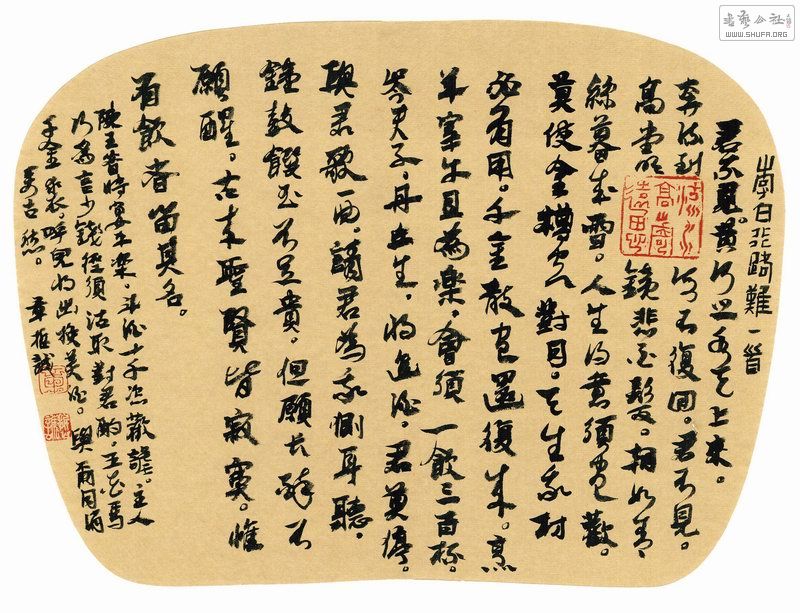 李白行路難一首
君不見。黄河之水天上来。
奔流到海不復回。君不見。
高堂明鏡悲白髮。朝如青
絲暮成雪。人生得意須盡歡。
莫使金樽空對月。天生我材
必有用。千金散盡還復来。烹
羊宰牛且為樂,會須一飲三百杯。
岑夫子,丹丘生,将進酒。君莫停。
與君歌一曲,請君為我側耳聽,
鐘鼓饌玉不足貴。但願長醉不
願醒。古来聖賢皆寂寞。惟
有飲者留其名。
陳王昔時宴平樂,斗酒十千恣歡謔。主人
何為言少錢徑須沽取對君酌。五花馬
千金裘。呼兒将出换美酒。與爾同消
萬古愁。章
書藝公社
WWW.SHUFA.ORG